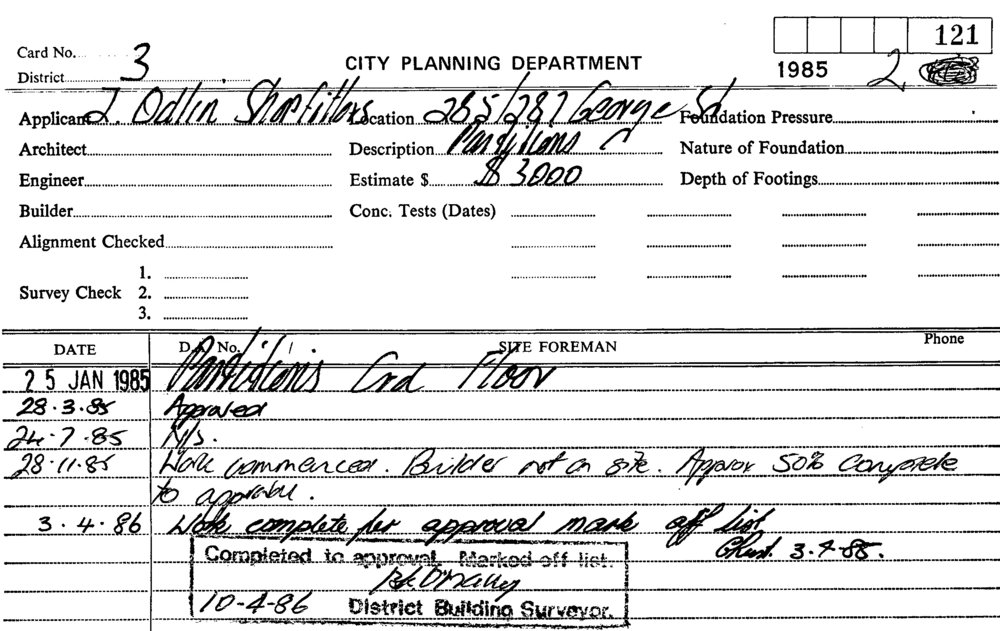 121
Card No. 3
CITY PLANNING DEPARTMENT
1985 2
District
Applicant J. Odlin Shopfitters Location 285/287 George St Foundation Pressure
Architect Description Partitions Nature of Foundation
Engineer Estimate $ $ 3000 Depth of Footings
Builder Conc. Tests (Dates)
Alignment Checked
1.
Survey Check 2.
3.
DATE D.A. No. SITE FOREMAN Phone
25 JAN 1985 Partitions Grd Floor
28.3.85 Approved
24.7.85 N/s.
28.11.85 Work commenced. Builder not on site. Approx 50% complete
to approval.
3.4.86 Work complete per approval mark off list
3.4.85.
Completed to approval. Marked off list.
10-4-86 District Building Surveyor.